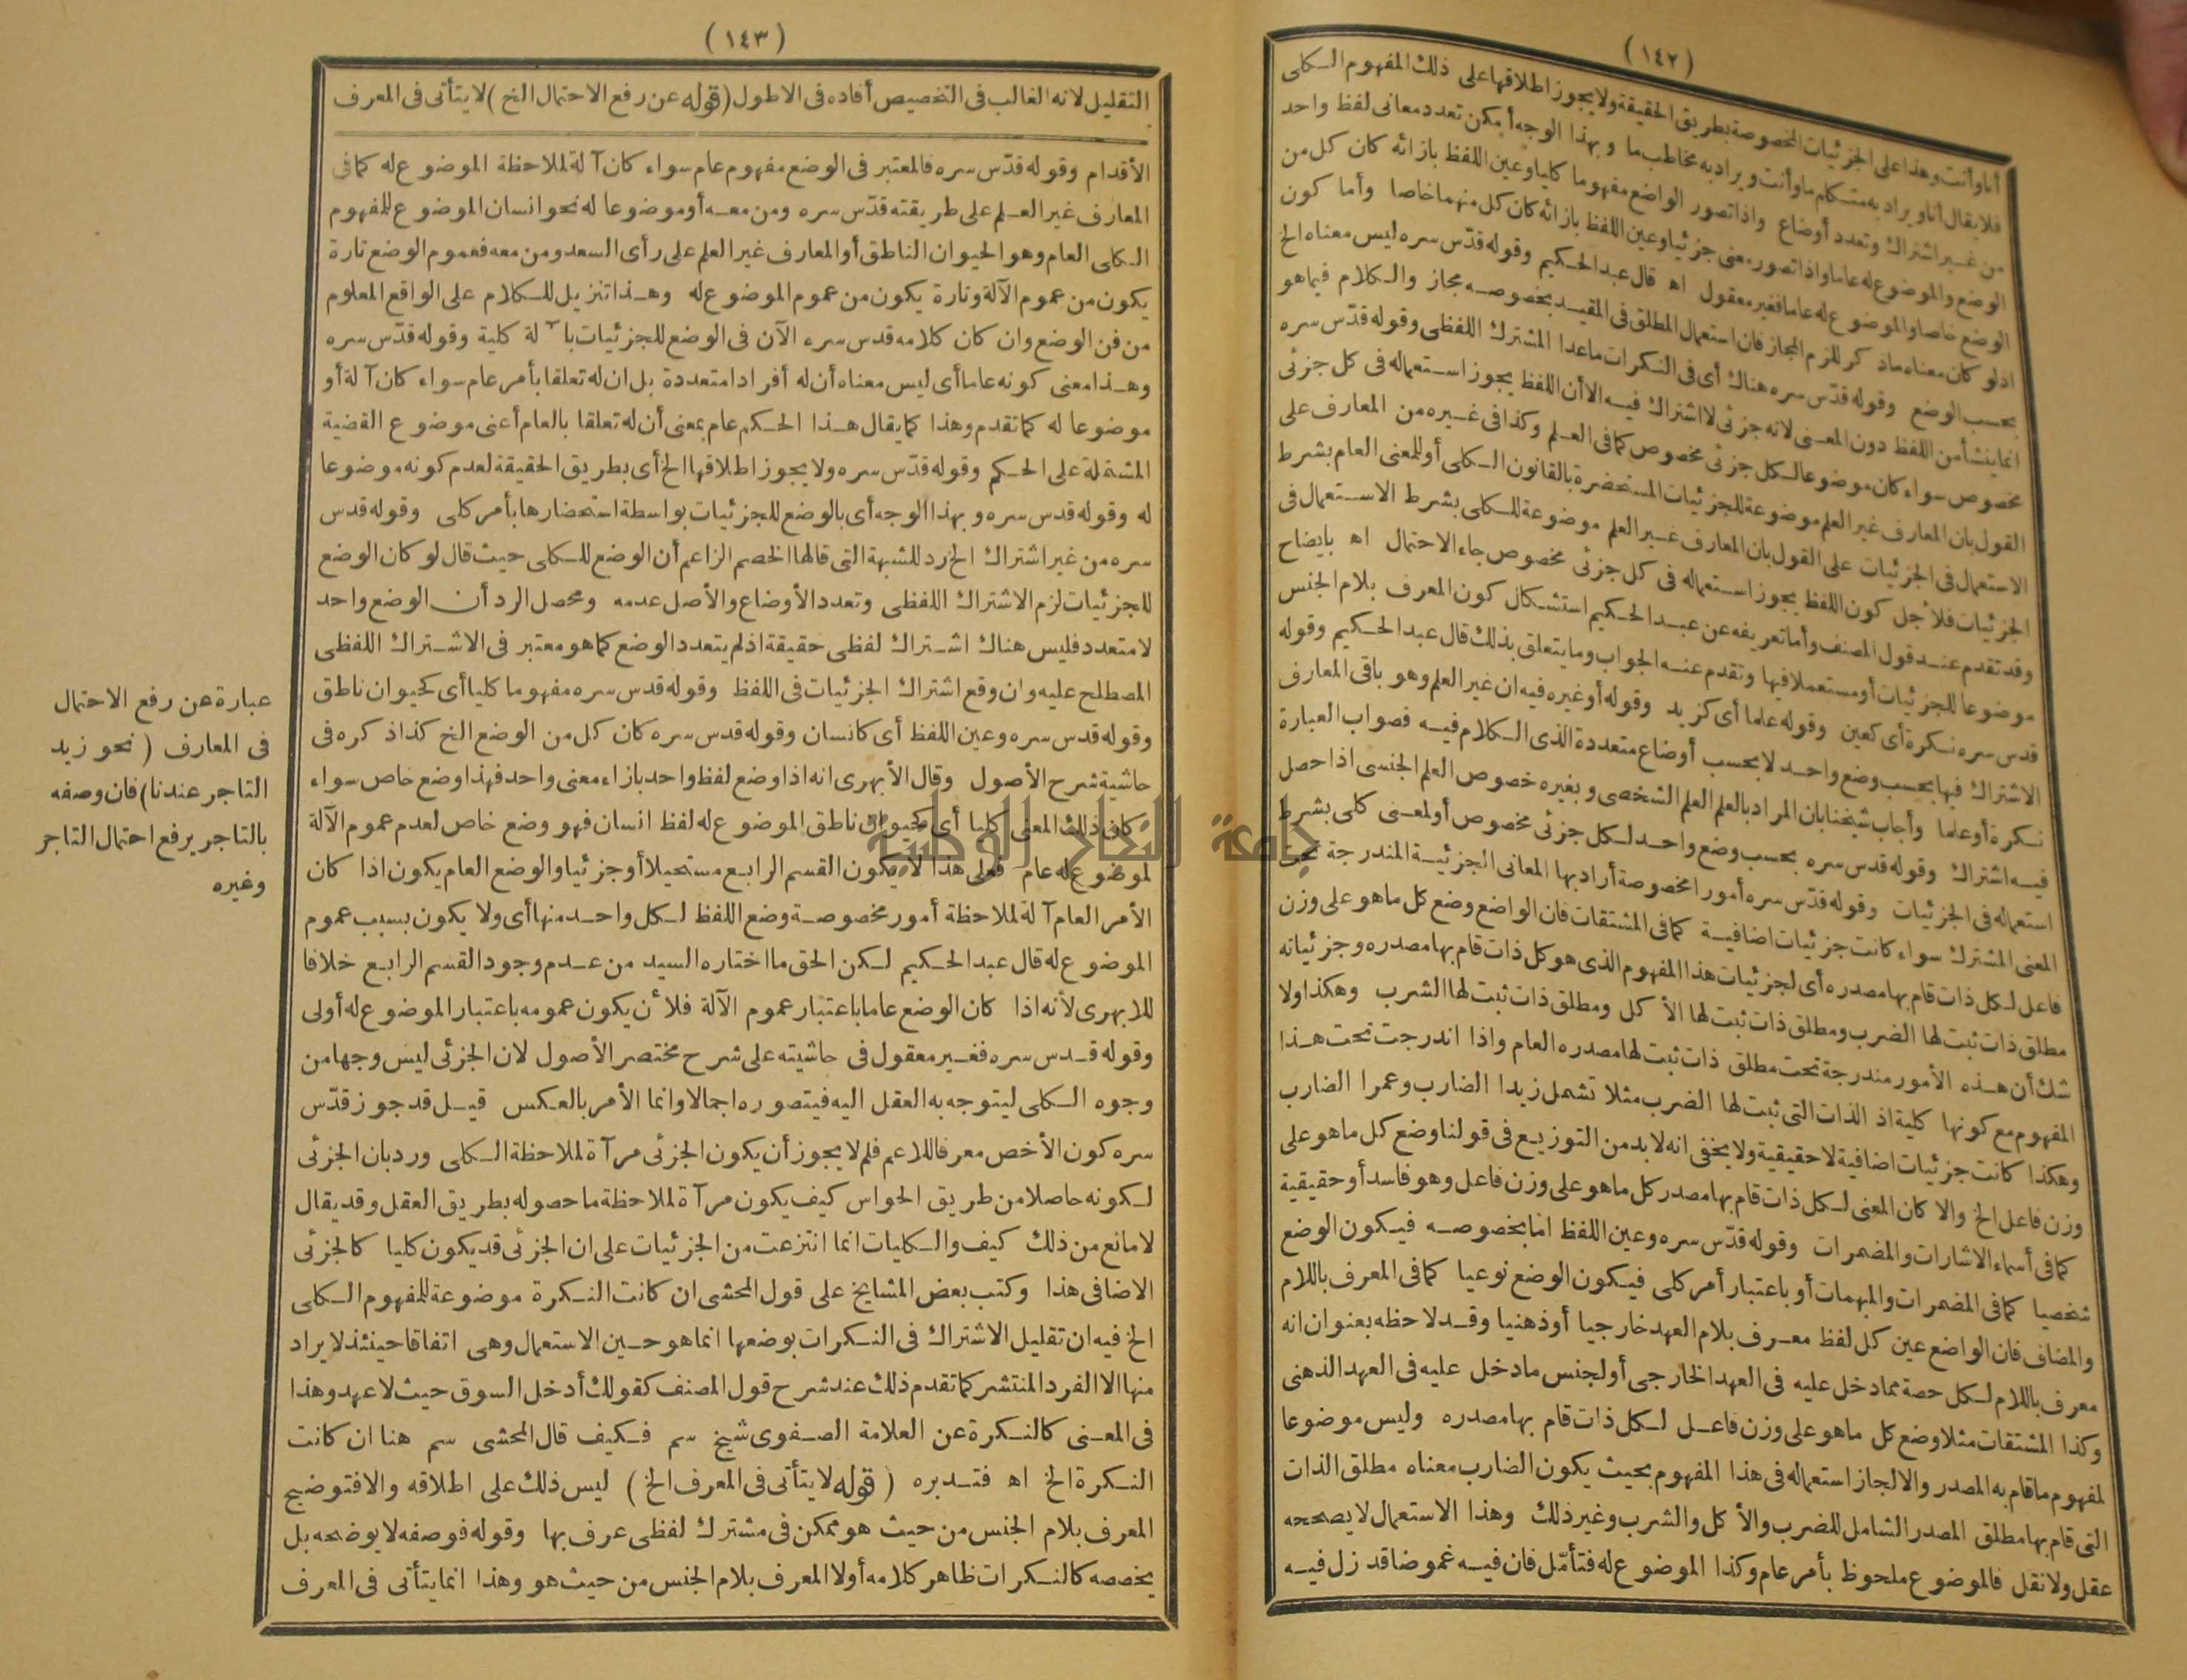 (١٤٢)
أنا وأنت وهذا على الجزئيات المخصوصة بطريق الحقيقة ولا يجوز اطلاقها على ذلك المفهوم الكلى
فلا يقال أنا ويراد به متكلم ما وأنت ويراد به مخاطب ما وبهذا الوجه أمكن تعدد معانى لفظ واحد
من غير اشتراك وتعدد أوضاع واذا تصور الواضع مفهوما كليا وعين اللفظ بازائه كان كل من
الوضع والموضوع له عاما واذا تصور معنى جزئيا وعين اللفظ بازائه كان كل منهما خاصا وأما كون
الوضع خاصا والموضوع له عاما فغير معقول اه قال عبد الحكيم وقوله قدّس سره ليس معناه الخ
اذ لو كان معناه ماذكر للزم المجاز فان استعمال المطلق فى المقيد بخصوصه مجاز والكلام فيما هو
بحسب الوضع وقوله قدّس سره هناك أى فى النكرات ماعدا المشترك اللفظى وقوله قدّس سره
انما ينشأ من اللفظ دون المعنى لانه جزئى لا اشتراك فيه الا أن اللفظ يجوز استعماله فى كل جزئى
مخصوص سواء كان موضوعا لكل جزئى مخصوص كما فى العلم وكذا فى غيره من المعارف على
القول بان المعارف غير العلم موضوعة للجزئيات المستحضرة بالقانون الكلى أو للمعنى العام بشرط
الاستعمال فى الجزئيات على القول بان المعارف غير العلم موضوعة للكلى بشرط الاستعمال فى
الجزئيات فلأجل كون اللفظ يجوز استعماله فى كل جزئى مخصوص جاء الاحتمال اه بايضاح
وقد تقدم عند قول المصنف وأما تعريفه عن عبد الحكيم استشكال كون المعرف بلام الجنس
موضوعا للجزئيات أو مستعملا فيها وتقدم عنه الجواب وما يتعلق بذلك قال عبد الحكيم وقوله
قدس سره نكرة أى كعين وقوله عاما أى كزيد وقوله أو غيره فيه ان غير العلم وهو باقى المعارف
الاشتراك فيها بحسب وضع واحد لا بحسب أوضاع متعددة الذى الكلام فيه فصواب العبارة
نكرة أو علما وأجاب شيخنا بان المراد بالعلم العلم الشخصى وبغيره خصوص العلم الجنسى اذا حصل
فيه اشتراك وقوله قدس سره بحسب وضع واحد لكل جزئى مخصوص أو لمعنى كلى بشرط
استعماله فى الجزئيات وقوله قدّس سره أمورا مخصوصة أراد بها المعانى الجزئية المندرجة تحت
المعنى المشترك سواء كانت جزئيات اضافية كما فى المشتقات فان الواضع وضع كل ما هو على وزن
فاعل لكل ذات قام بها مصدره أى لجزئيات هذا المفهوم الذى هو كل ذات قام بها مصدره وجزئياته
مطلق ذات ثبت لها الضرب ومطلق ذات ثبت لها الأكل ومطلق ذات ثبت لها الشرب وهكذا ولا
شك أن هذه الأمور مندرجة تحت مطلق ذات ثبت لها مصدره العام واذا اندرجت تحت هذا
المفهوم مع كونها كلية اذ الذات التى ثبت لها الضرب مثلا تشمل زيدا الضارب وعمرا الضارب
وهكذا كانت جزئيات اضافية لا حقيقية ولا يخفى انه لا بد من التوزيع فى قولنا وضع كل ما هو على
وزن فاعل الخ والا كان المعنى لكل ذات قام بها مصدر كل ما هو على وزن فاعل وهو فاسد أو حقيقية
كما فى أسماء الاشارات والمضمرات وقوله قدّس سره وعين اللفظ اما بخصوصه فيكون الوضع
شخصيا كما فى المضمرات والمبهمات أو باعتبار أمر كلى فيكون الوضع نوعيا كما فى المعرف باللام
والمضاف فان الواضع عين كل لفظ معرف بلام العهد خارجيا أو ذهنيا وقد لاحظه بعنوان انه
معرف باللام لكل حصة مما دخل عليه فى العهد الخارجى أو لجنس مادخل عليه فى العهد الذهنى
وكذا المشتقات مثلا وضع كل ما هو على وزن فاعل لكل ذات قام بها مصدره وليس موضوعا
لمفهوم ما قام به المصدر والا لجاز استعماله فى هذا المفهوم بحيث يكون الضارب معناه مطلق الذات
التى قام بها مطلق المصدر الشامل للضرب والأكل والشرب وغير ذلك وهذا الاستعمال لا يصححه
عقل ولا نقل فالموضوع ملحوظ بأمر عام وكذا الموضوع له فتأمّل فان فيه غموضا قد زل فيه
(١٤٣)
التقليل لانه الغالب فى التخصيص أفاده فى الاطول (قوله عن رفع الاحتمال الخ) لا يتأتى فى المعرف
الأقدام وقوله قدّس سره فالمعتبر فى الوضع مفهوم عام سواء كان آلة لملاحظة الموضوع له كما فى
المعارف غير العلم على طريقته قدّس سره ومن معه أو موضوعا له نحو انسان الموضوع للمفهوم
الكلى العام وهو الحيوان الناطق أو المعارف غير العلم على رأى السعد ومن معه فعموم الوضع تارة
يكون من عموم الآلة وتارة يكون من عموم الموضوع له وهذا تنزيل للكلام على الواقع المعلوم
من فن الوضع وان كان كلامه قدس سره الآن فى الوضع للجزئيات بآلة كلية وقوله قدّس سره
وهذا معنى كونه عاما أى ليس معناه أن له أفرادا متعددة بل ان له تعلقا بأمر عام سواء كان آلة أو
موضوعا له كما تقدم وهذا كما يقال هذا الحكم عام بمعنى أن له تعلقا بالعام أعنى موضوع القضية
المشتملة على الحكم وقوله قدّس سره ولا يجوز اطلاقها الخ أى بطريق الحقيقة لعدم كونه موضوعا
له وقوله قدس سره وبهذا الوجه أى بالوضع للجزئيات بواسطة استحضارها بأمر كلى وقوله قدس
سره من غير اشتراك الخ رد للشبهة التى قالها الخصم الزاعم أن الوضع للكلى حيث قال لو كان الوضع
للجزئيات لزم الاشتراك اللفظى وتعدد الأوضاع والأصل عدمه ومحصل الرد أن الوضع واحد
لا متعدد فليس هناك اشتراك لفظى حقيقة اذ لم يتعدد الوضع كما هو معتبر فى الاشتراك اللفظى
المصطلح عليه وان وقع اشتراك الجزئيات فى اللفظ وقوله قدس سره مفهوما كليا أى كحيوان ناطق
وقوله قدس سره وعين اللفظ أى كانسان وقوله قدس سره كان كل من الوضع الخ كذا ذكره فى
حاشية شرح الأصول وقال الأبهرى انه اذا وضع لفظ واحد بازاء معنى واحد فهذا وضع خاص سواء
كان ذلك المعنى كليا أى كحيوان ناطق الموضوع له لفظ انسان فهو وضع خاص لعدم عموم الآلة
لموضوع له عام فعلى هذا لا يكون القسم الرابع مستحيلا أو جزئيا والوضع العام يكون اذا كان
الأمر العام آلة لملاحظة أمور مخصوصة وضع اللفظ لكل واحد منها أى ولا يكون بسبب عموم
الموضوع له قال عبد الحكيم لكن الحق ما اختاره السيد من عدم وجود القسم الرابع خلافا
للابهرى لأنه اذا كان الوضع عاما باعتبار عموم الآلة فلأن يكون عمومه باعتبار الموضوع له أولى
وقوله قدس سره فغير معقول فى حاشيته على شرح مختصر الأصول لان الجزئى ليس وجها من
وجوه الكلى ليتوجه به العقل اليه فيتصوره اجمالا وانما الأمر بالعكس قيل قد جوز قدّس
سره كون الأخص معرفا للاعم فلم لا يجوز أن يكون الجزئى مرآة لملاحظة الكلى ورد بان الجزئى
لكونه حاصلا من طريق الحواس كيف يكون مرآة لملاحظة ما حصوله بطريق العقل وقد يقال
لا مانع من ذلك كيف والكليات انما انتزعت من الجزئيات على ان الجزئى قد يكون كليا كالجزئى
الاضافى هذا وكتب بعض المشايخ على قول المحشى ان كانت النكرة موضوعة للمفهوم الكلى
الخ فيه ان تقليل الاشتراك فى النكرات بوضعها انما هو حين الاستعمال وهى اتفاقا حينئذ لا يراد
منها الا الفرد المنتشر كما تقدم ذلك عند شرح قول المصنف كقولك أدخل السوق حيث لا عهد وهذا
فى المعنى كالنكرة عن العلامة الصفوى شيخ سم فكيف قال المحشى سم هنا ان كانت
النكرة الخ اه فتدبره (قوله لا يتأتى فى المعرف الخ) ليس ذلك على اطلاقه والا فتوضيح
المعرف بلام الجنس من حيث هو ممكن فى مشترك لفظى عرف بها وقوله فوصفه لا يوضحه بل
يخصصه كالنكرات ظاهر كلامه أولا المعرف بلام الجنس من حيث هو وهذا انما يتأتى فى المعرف
عبارة عن رفع الاحتمال
فى المعارف (نحو زيد
التاجر عندنا) فان وصفه
بالتاجر يرفع احتمال التاجر
وغيره
جامعة النجاح الوطنية